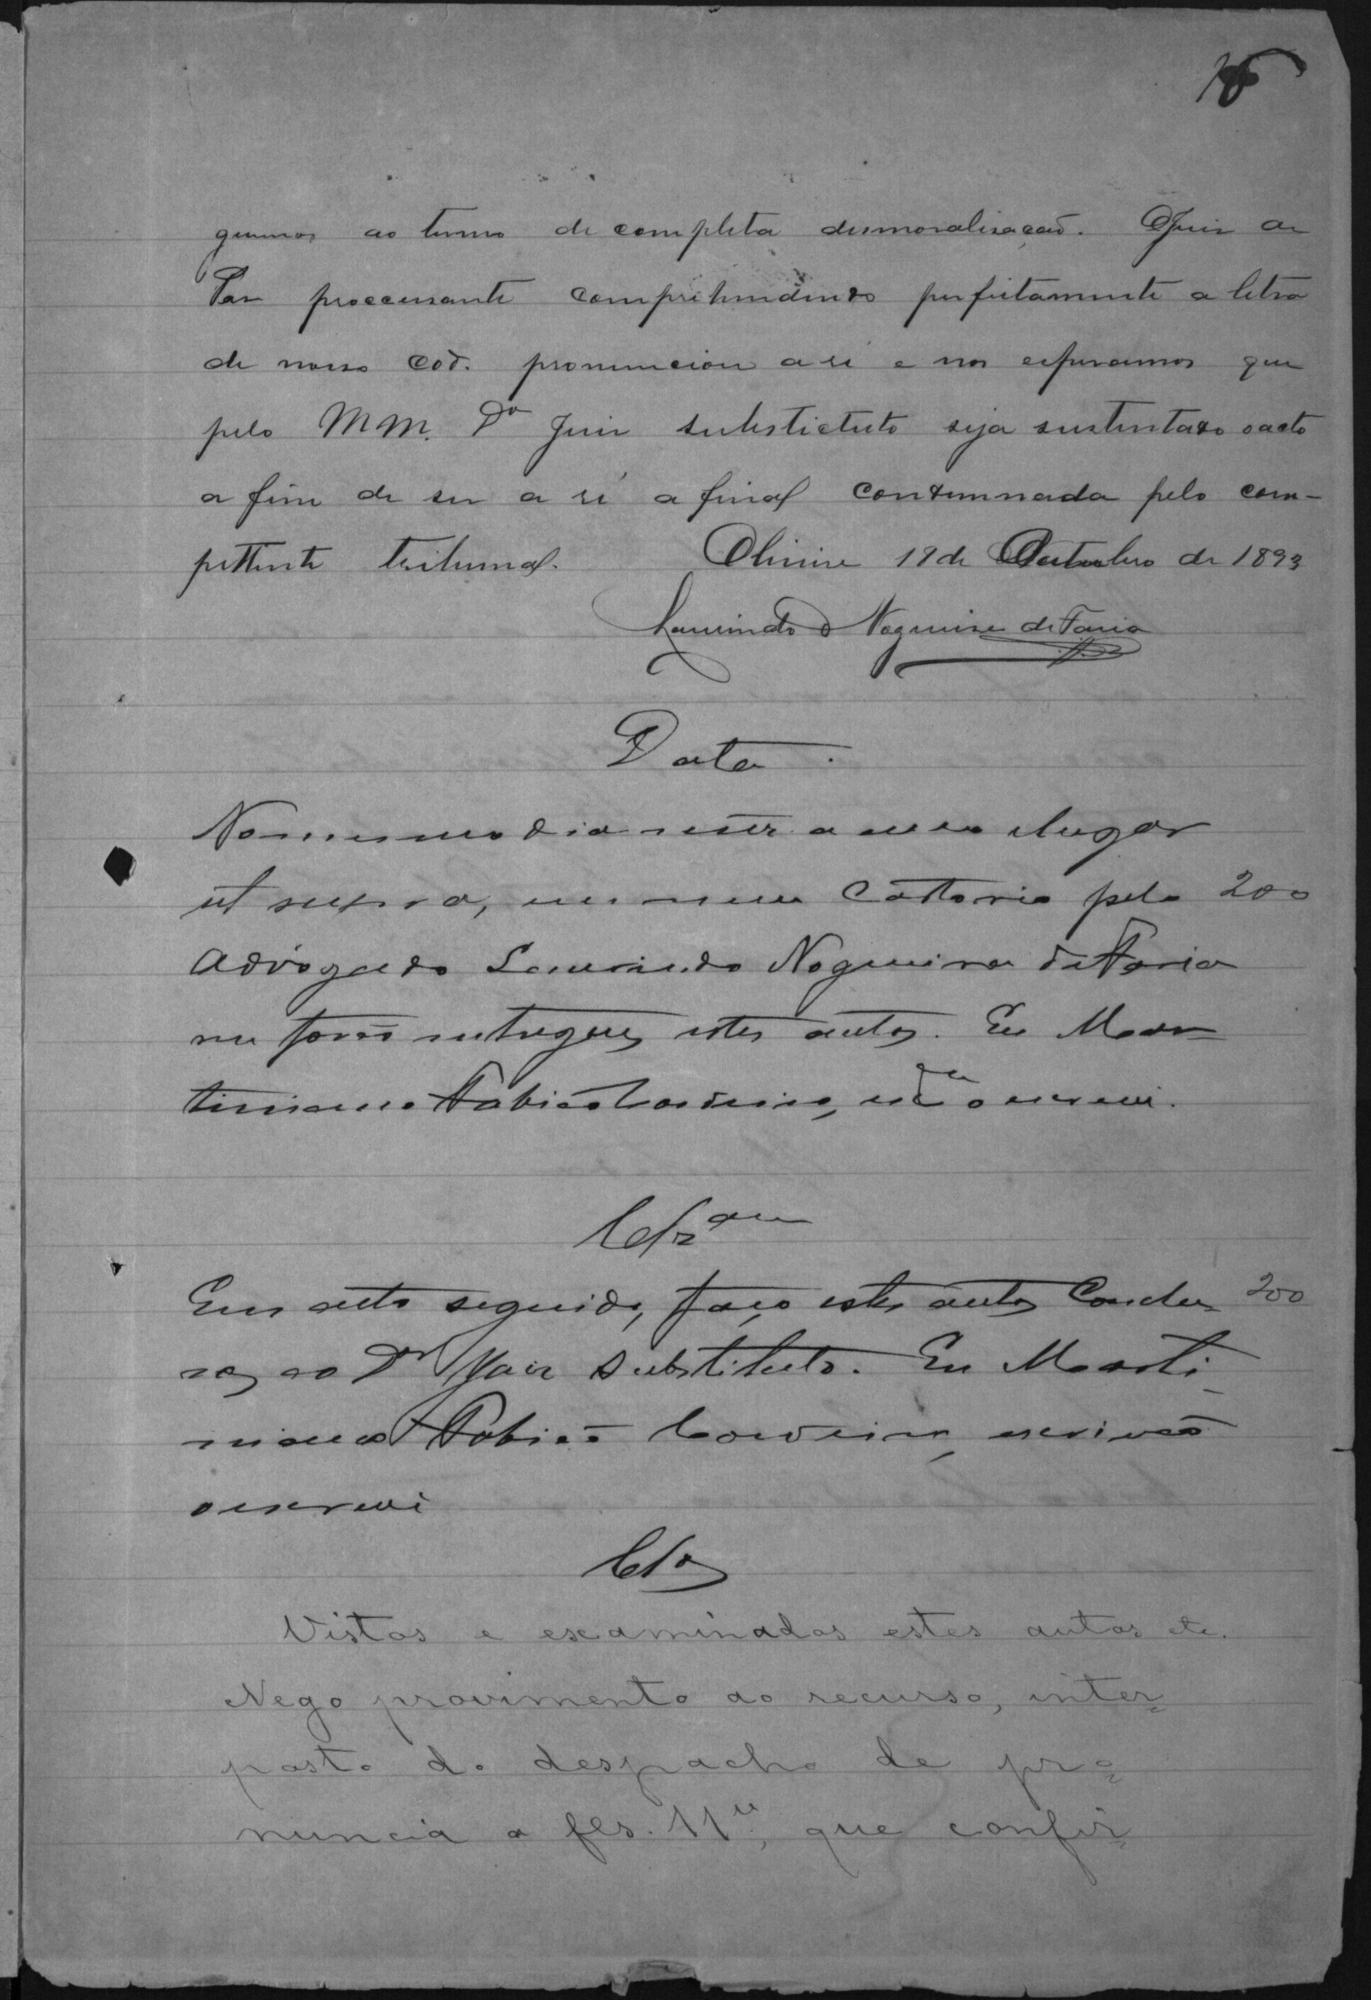 guemos ao termo de completa desmoralisação. O Juiz de
Paz processante comprehendendo perfeitamente a letra
de nosso Cod. pronunciou a ré e nos esperamos que
pelo MM. Dr Juiz substictuto seja sustentado o acto
a fim de ser a ré a final condemnada pelo com-
pettente tribunal. 19 de Outubro de 1893
Laurindo Nogueira de Faria
Data.
No mesmo dia mez e anno e lugar
ut supra, em meu Cartorio pelo 200
Advogado Laurindo Nogueira de Faria
me forão entregues estes autos. Eu Mar-
tiniano Fabião Cordeiro, o escrevi.
Clzam
Em acto seguido, faço estes autos Conclu- 200
zos ao Dr Juiz Substituto. Eu Marti-
niano Fabião Cordeiro, escrivão
o escrevi
Clos
Vistos e examinados estes autos etc.
Nego provimento ao recurso, inter-
posto do despacho de pro-
nuncia a fls. 11v, que confir-